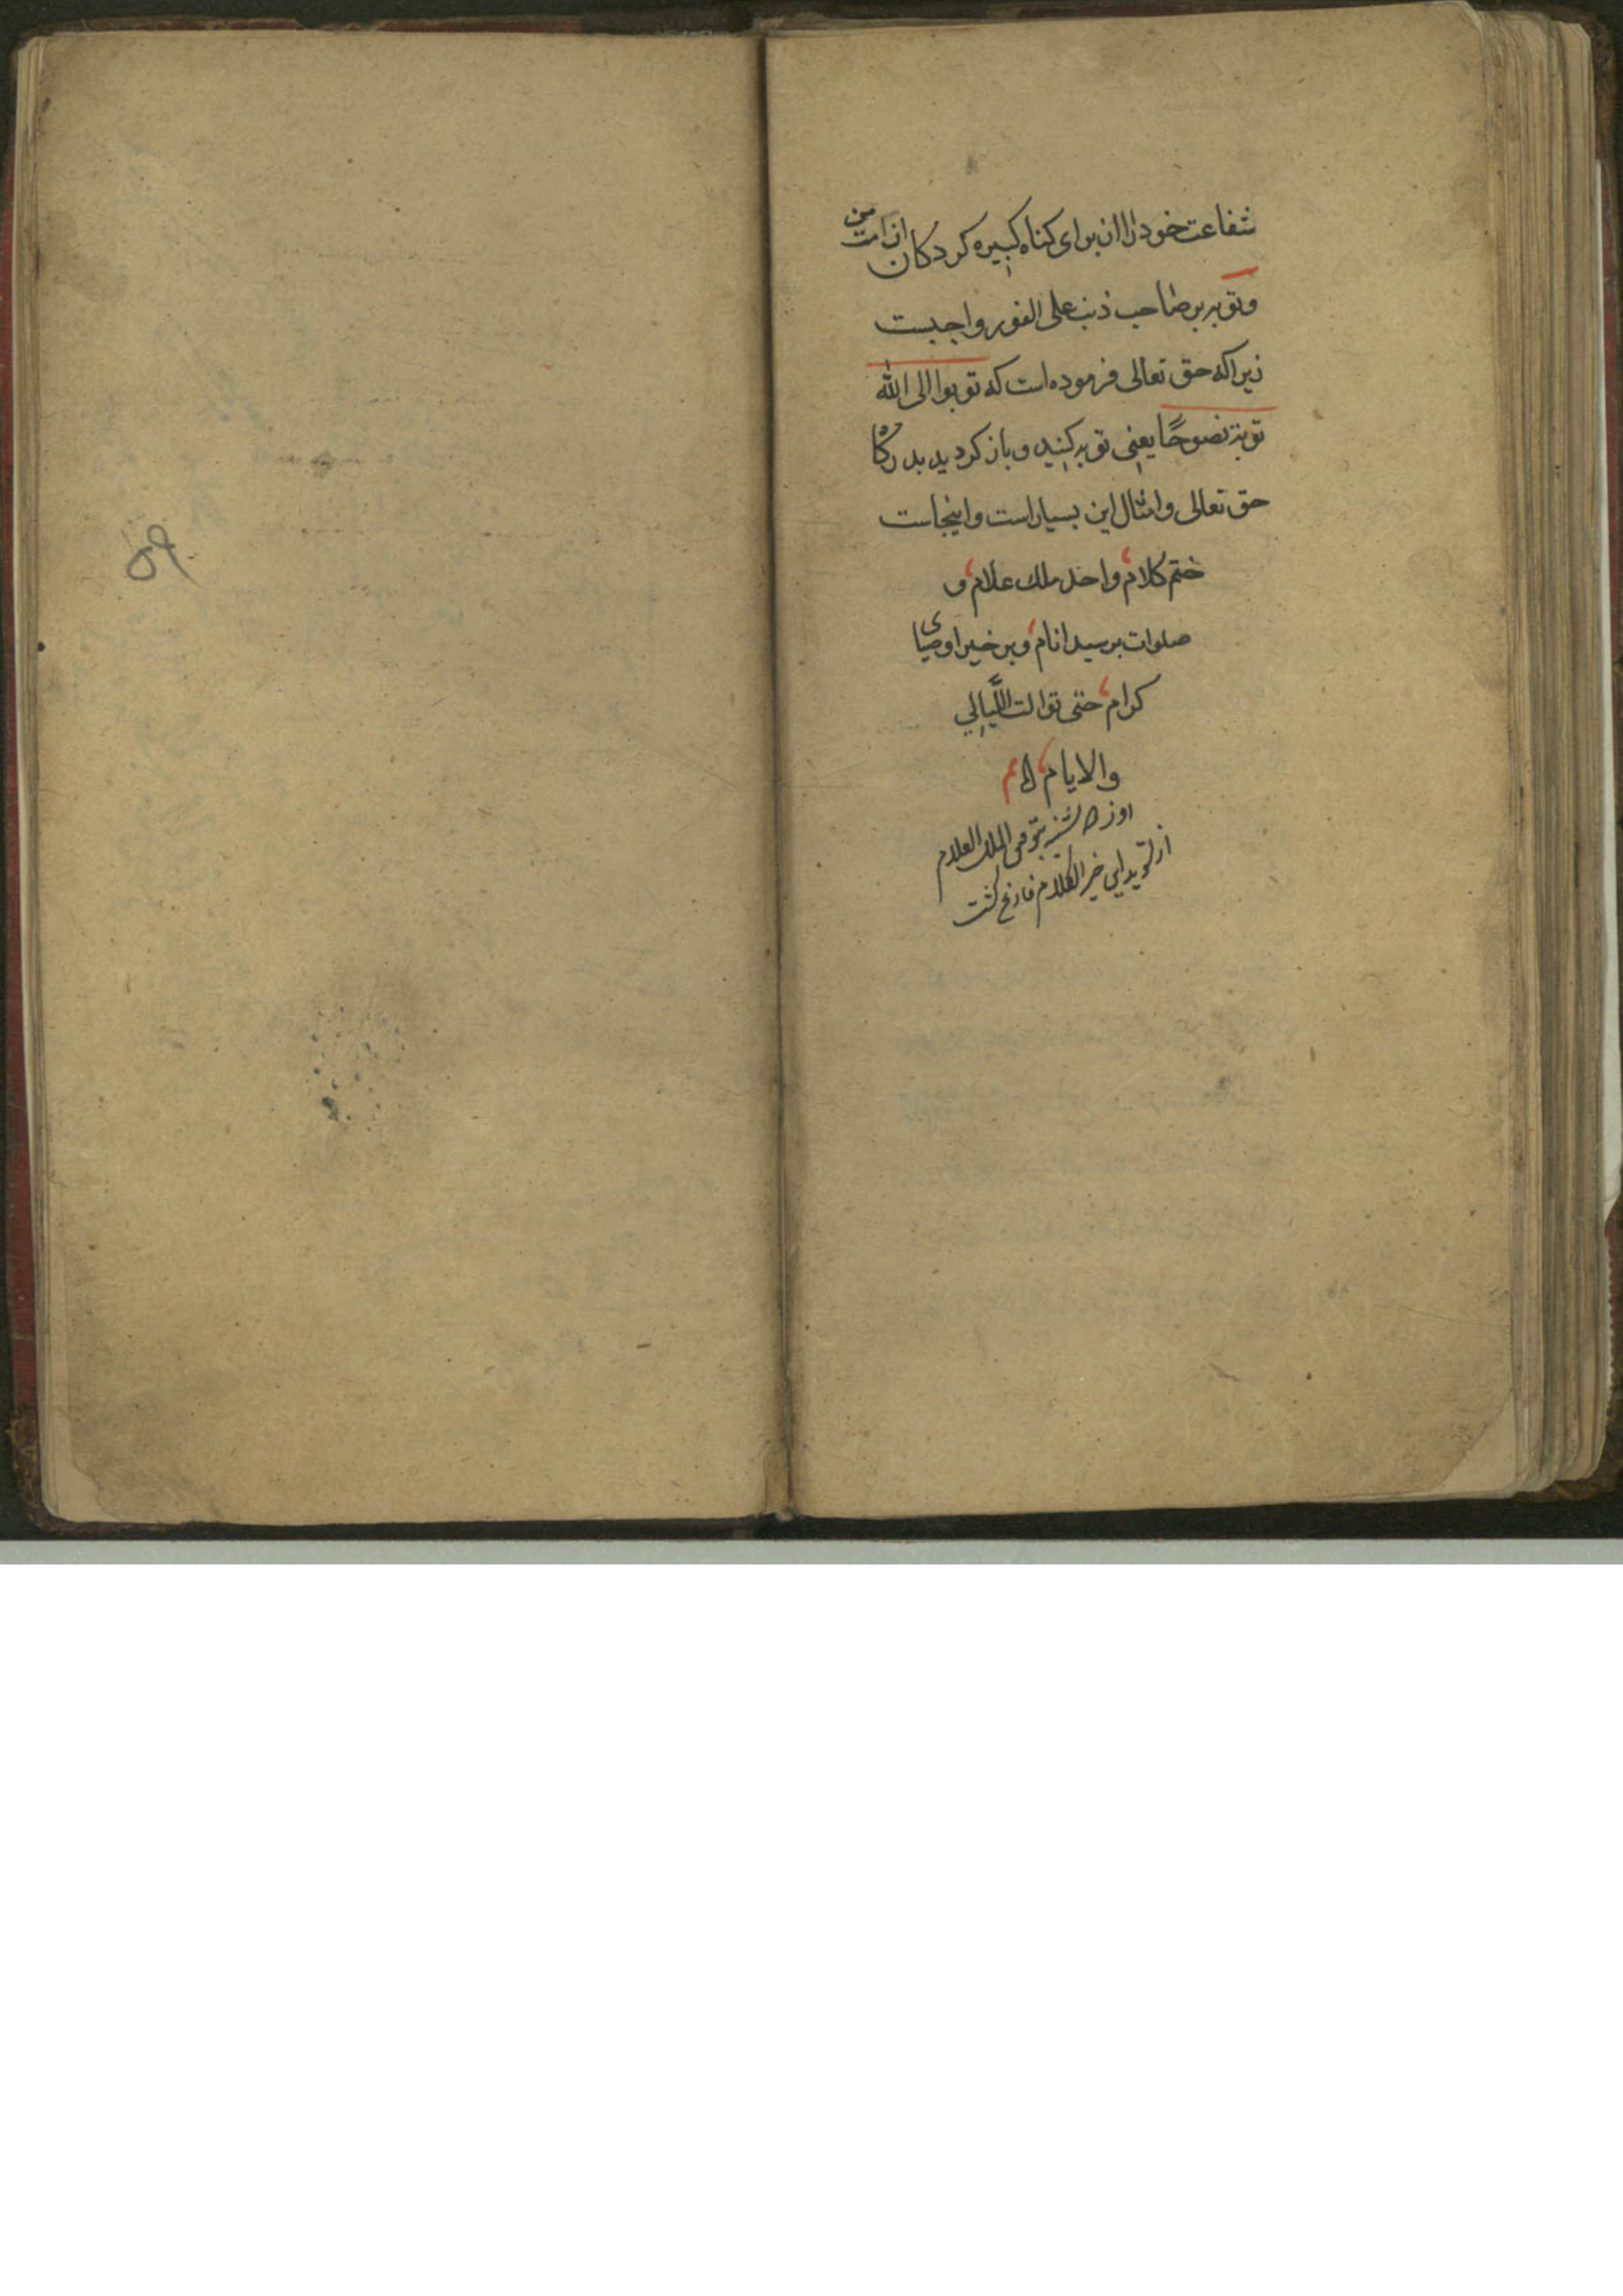 شفاعت خود را از برای کناه کبیره کردکان از امت من
و توبه بر صاحب ذنب علی الفور واجبست
زیرا که حق تعالی فرموده است که توبوا الی الله
توبة نصوحًا یعنی توبه کنید و باز کردید بدرکاه
حق تعالی و امثال این بسیار است و اینجاست
ختم کلام و احد ملك علام و
صلوات بر سید انام و بر خیر اوصیای
کرام حتی توالت اللَّیالِي
والایام
روز شنبه بتوفیق الملك العلام
از تسوید این خیر الکلام فارغ کشت
۵۹